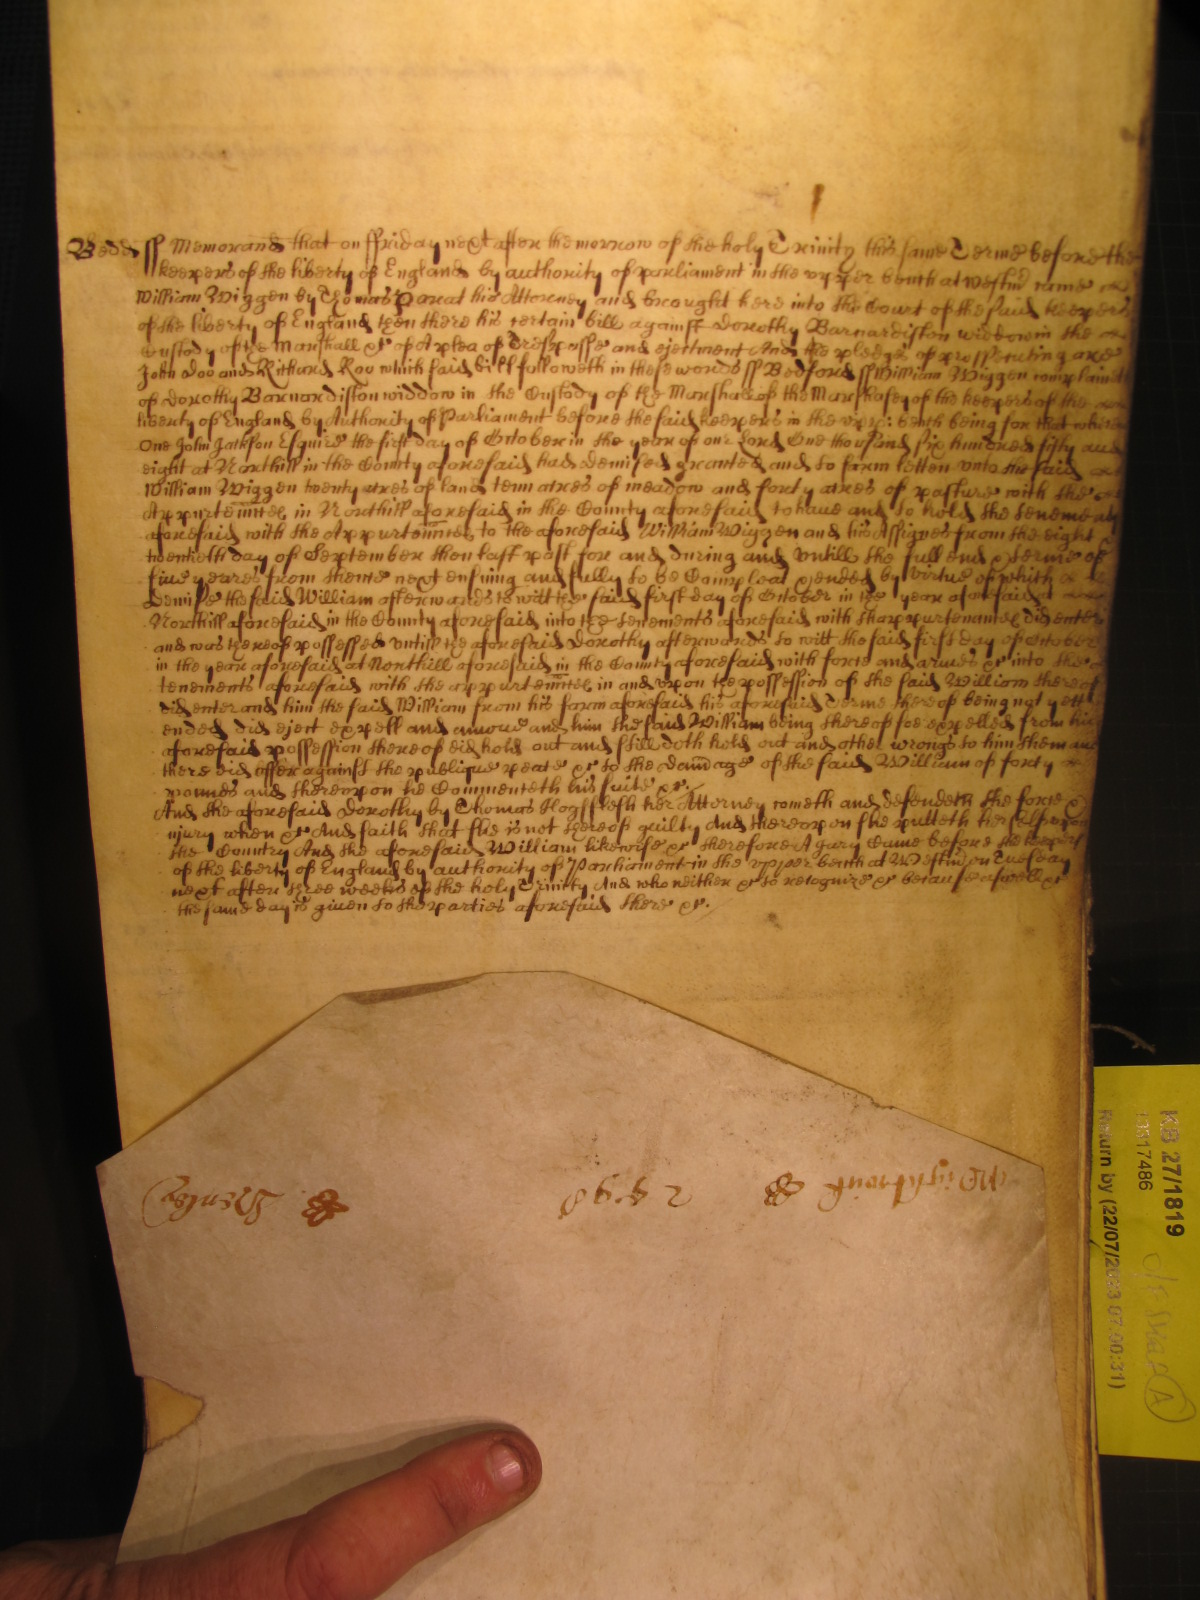 Bedd ss Memorand that on ffriday next after the morrow of the holy Trinity this same Terme before the
keepers of the liberty of England by authority of parliament in the upper bench at Westmr came
William Wiggen by Thomas his Attorney and brought here into the Court of the said keepers
of the liberty of England then there his certain bill against Dorothy Barnardiston widdow in the
custody of the Marshall &c of A plea of Trespasse and ejectment And the pledges of prosecuting are
John Doo and Richard Roo which said bill followeth in these words ss Bedford ss William Wiggen complaineth
of Dorothy Barnardiston widdow in the Custody of the Marshal of the Marshalsey of the keepers of the
liberty of England by Authority of Parliament before the said keepers in the upp: bench being for that whereas
One John Jackson Esquire the first day of October in the year of our Lord One thousand six hundred fifty and
eight at Northill in the County aforesaid had demised granted and to farm letten unto the said
William Wiggen twenty acres of land tenn acres of meadow and forty acres of pasture with the
Appurtennces in Northill aforesaid in the County aforesaid to have and to hold the tenements
aforesaid with the Appurtennces to the aforesaid William Wiggen and his Assignes from the eight &
twentieth day of September then last past for and during and untill the full end & terme of
five yeares from thence next ensuing and fully to be Compleat & ended by virtue of which
Demise the said William afterwards to witt the said first day of October in the year aforesaid
Northill aforesaid in the County aforesaid into the tenements aforesaid with thappurtenances did enter
and was thereof possessed untill the aforesaid Dorothy afterwards to witt the said first day of October
in the year aforesaid at Northill aforesaid in the County aforesaid with force and armes &c into the
tenements aforesaid with the appurtennces in and upon the possession of the said William thereof
did enter and him the said William from his farm aforesaid his aforesaid Terme thereof being not yett
ended did eject expell and amove and him the said William being thereof soe expelled from his
aforesaid possession thereof did hold out and still doth hold out and other wrongs to him then and
there did offer against the publique peace &c to the damage of the said William of forty
pounds and thereupon he Commenceth his suite &c
And the aforesaid Dorothy by Thomas Hoggflesh her Attorney cometh and defendeth the force &
injury when &c And saith that she is not thereof guilty And thereupon she putteth her self upon
the Country And the aforesaid William likewise &c therefore A jury Came before the keepers
of the liberty of England by authority of Parliament in the upper bench at Westmr on Tuesday
next after three weeks of the holy Trinity And who neither &c to recognize &c because aswell &c
the same day is given to the parties aforesaid there &c.
KB 27/1819
13517486
Return by (22/07/2023 07:00:31)
A